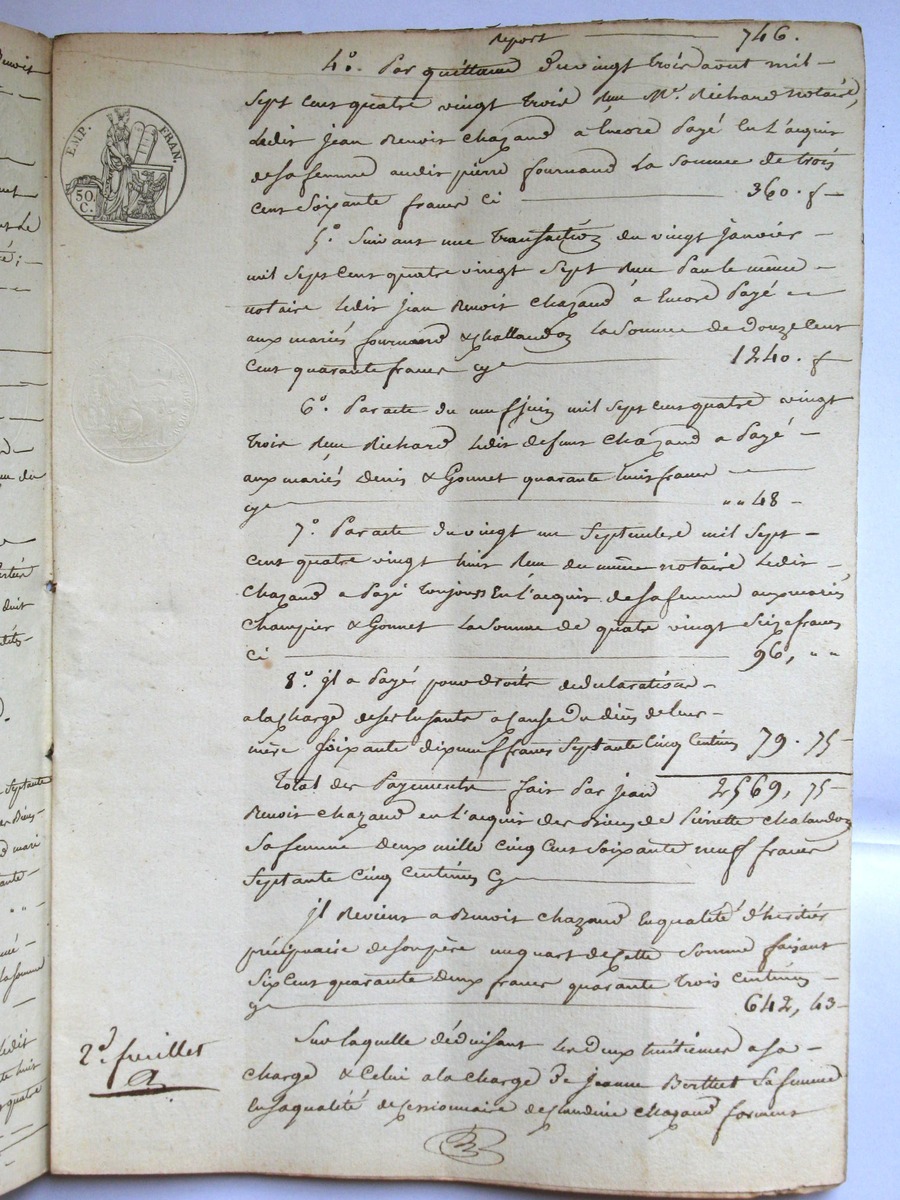 Report ——— 746.
4°. Par quittance du vingt trois avout mil
Sept cent quatre vingt trois Reçue Mᵉ. Richard notaire,
Ledit jean Benoit Chazaud a Encore Payé En L'acquit
de sa femme audit pierre fournand La Somme de trois
Cent Soixante francs Ci ——— 360. f —
5°. Suivant une Transaction du vingt Janvier
mil Sept Cent quatre vingt Sept Reçue Par le même
notaire Ledit jean Benoit Chazaud à Encore Payé
aux mariés fournand & Challandon La Somme de douze Cent
Cent quarante francs cy ——— 1240. f
6°. Par acte du neuf juin mil Sept Cent quatre vingt
trois Reçu Richard Ledit defunt Chazaud a Payé
aux mariés Denis & Gonnet quarante huit francs
cy ——— " " 48 -
7°. Par acte du vingt un Septembre mil Sept
Cent quatre vingt huit Reçu du même notaire Ledit
Chazaud a Payé Toujours En L'acquit de sa femme aux mariés
Champier & Gonnet La Somme de quatre vingt Seize francs
Ci ——— 96, " "
8°. il a Payé pour droits de déclaration
a la charge de ses Enfants a cause du décès de leur
mère Soixante dix neuf francs Septante Cinq Centimes 79. 75 -
Total des Payements fait Par jean 2569, 75 -
Benoit Chazaud en L'acquit des Biens de Pierrette Chalandon
Sa femme deux mille Cinq Cent Soixante neuf francs
Septante Cinq Centimes Cy ———
il Revient a Benoit Chazaud En qualité d'héritier
précipuaire de son père un quart de Cette Somme faisant
Six Cent quarante deux francs quarante trois Centimes
cy ——— 642, 43 -
Sur laquelle déduisant Les deux huitiemes a sa
charge & Celui a la charge de Jeanne Berthet Sa femme
En sa qualité de Cessionnaire de Claudine Chazaud forment
2ᵈ. feuillet
EMP. FRAN.
50 C.